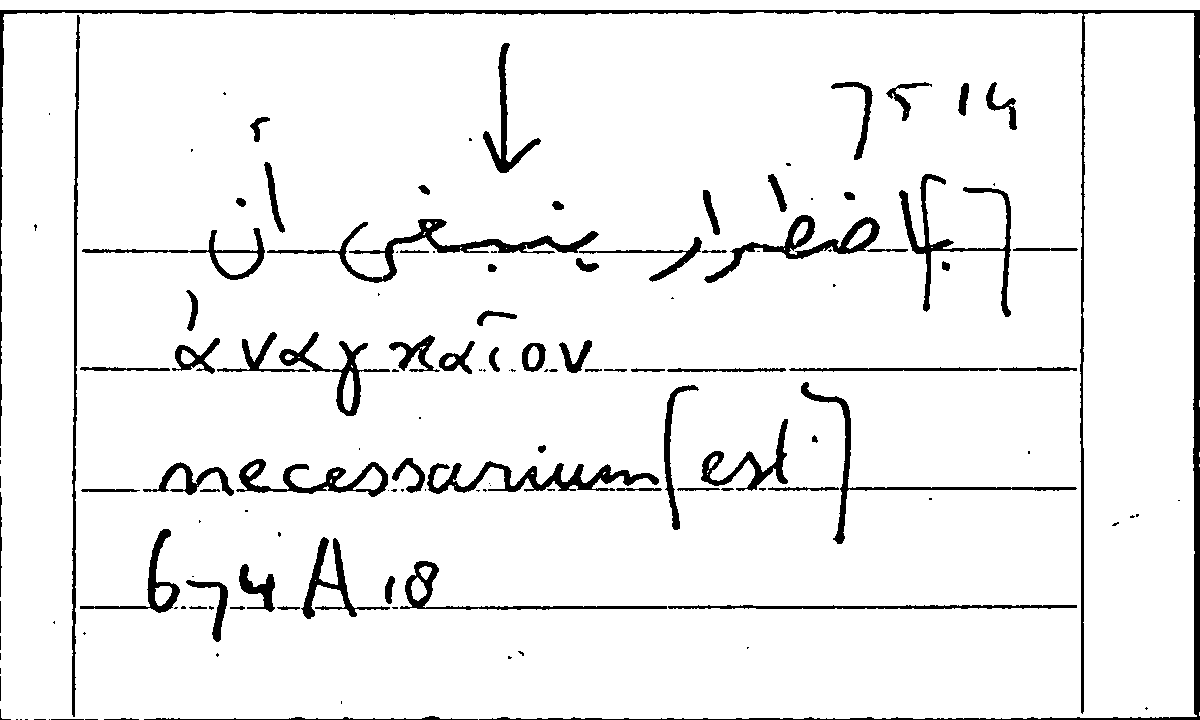 75 14
↓
[ب]اضطرار ينبغى أن
ἀναγκαῖον
necessarium [est.]
674 A 18